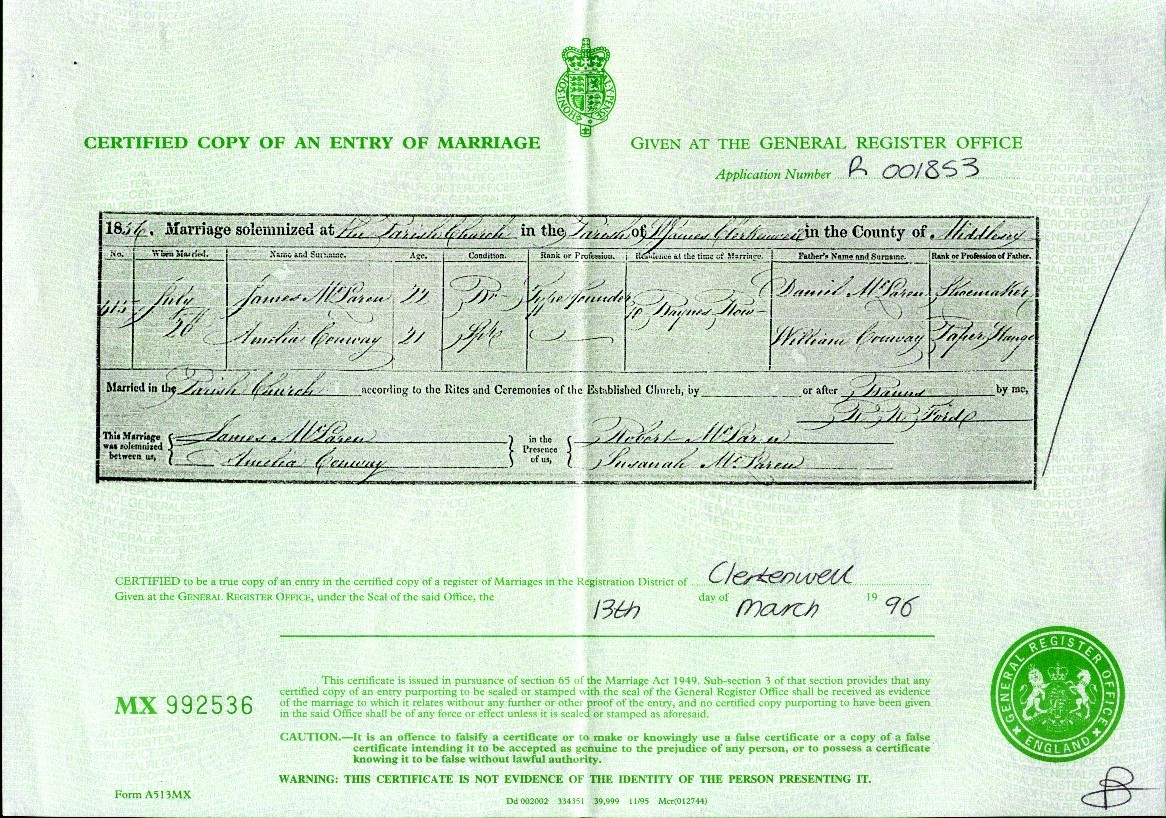 HONI SOIT QUI MAL Y PENSE
CERTIFIED COPY OF AN ENTRY OF MARRIAGE
GIVEN AT THE GENERAL REGISTER OFFICE
Application Number R 001853
1856. Marriage solemnized at the Parish Church in the Parish of St James Clerkenwell in the County of Middlesex
No. When Married. Name and Surname. Age. Condition. Rank or Profession. Residence at the time of Marriage. Father's Name and Surname. Rank or Profession of Father.
415 July 20th James McLaren 22 Type Founder Baynes Row Daniel McLaren Shoemaker
Amelia Conway 21 William Conway Paper Hange
Married in the Parish Church according to the Rites and Ceremonies of the Established Church, by or after Banns by me,
Ford
This Marriage was solemnized between us, James McLaren in the Presence of us, Robert McLaren
Amelia Conway Susanah McLaren
CERTIFIED to be a true copy of an entry in the certified copy of a register of Marriages in the Registration District of Clerkenwell
Given at the GENERAL REGISTER OFFICE, under the Seal of the said Office, the 13th day of March 19 96
This certificate is issued in pursuance of section 65 of the Marriage Act 1949. Sub-section 3 of that section provides that any
certified copy of an entry purporting to be sealed or stamped with the seal of the General Register Office shall be received as evidence
of the marriage to which it relates without any further or other proof of the entry, and no certified copy purporting to have been given
in the said Office shall be of any force or effect unless it is sealed or stamped as aforesaid.
MX 992536
CAUTION.—It is an offence to falsify a certificate or to make or knowingly use a false certificate or a copy of a false
certificate intending it to be accepted as genuine to the prejudice of any person, or to possess a certificate
knowing it to be false without lawful authority.
WARNING: THIS CERTIFICATE IS NOT EVIDENCE OF THE IDENTITY OF THE PERSON PRESENTING IT.
GENERAL REGISTER OFFICE
ENGLAND
Form A513MX
Dd 002002 334351 39,999 11/95 Mcr(012744)